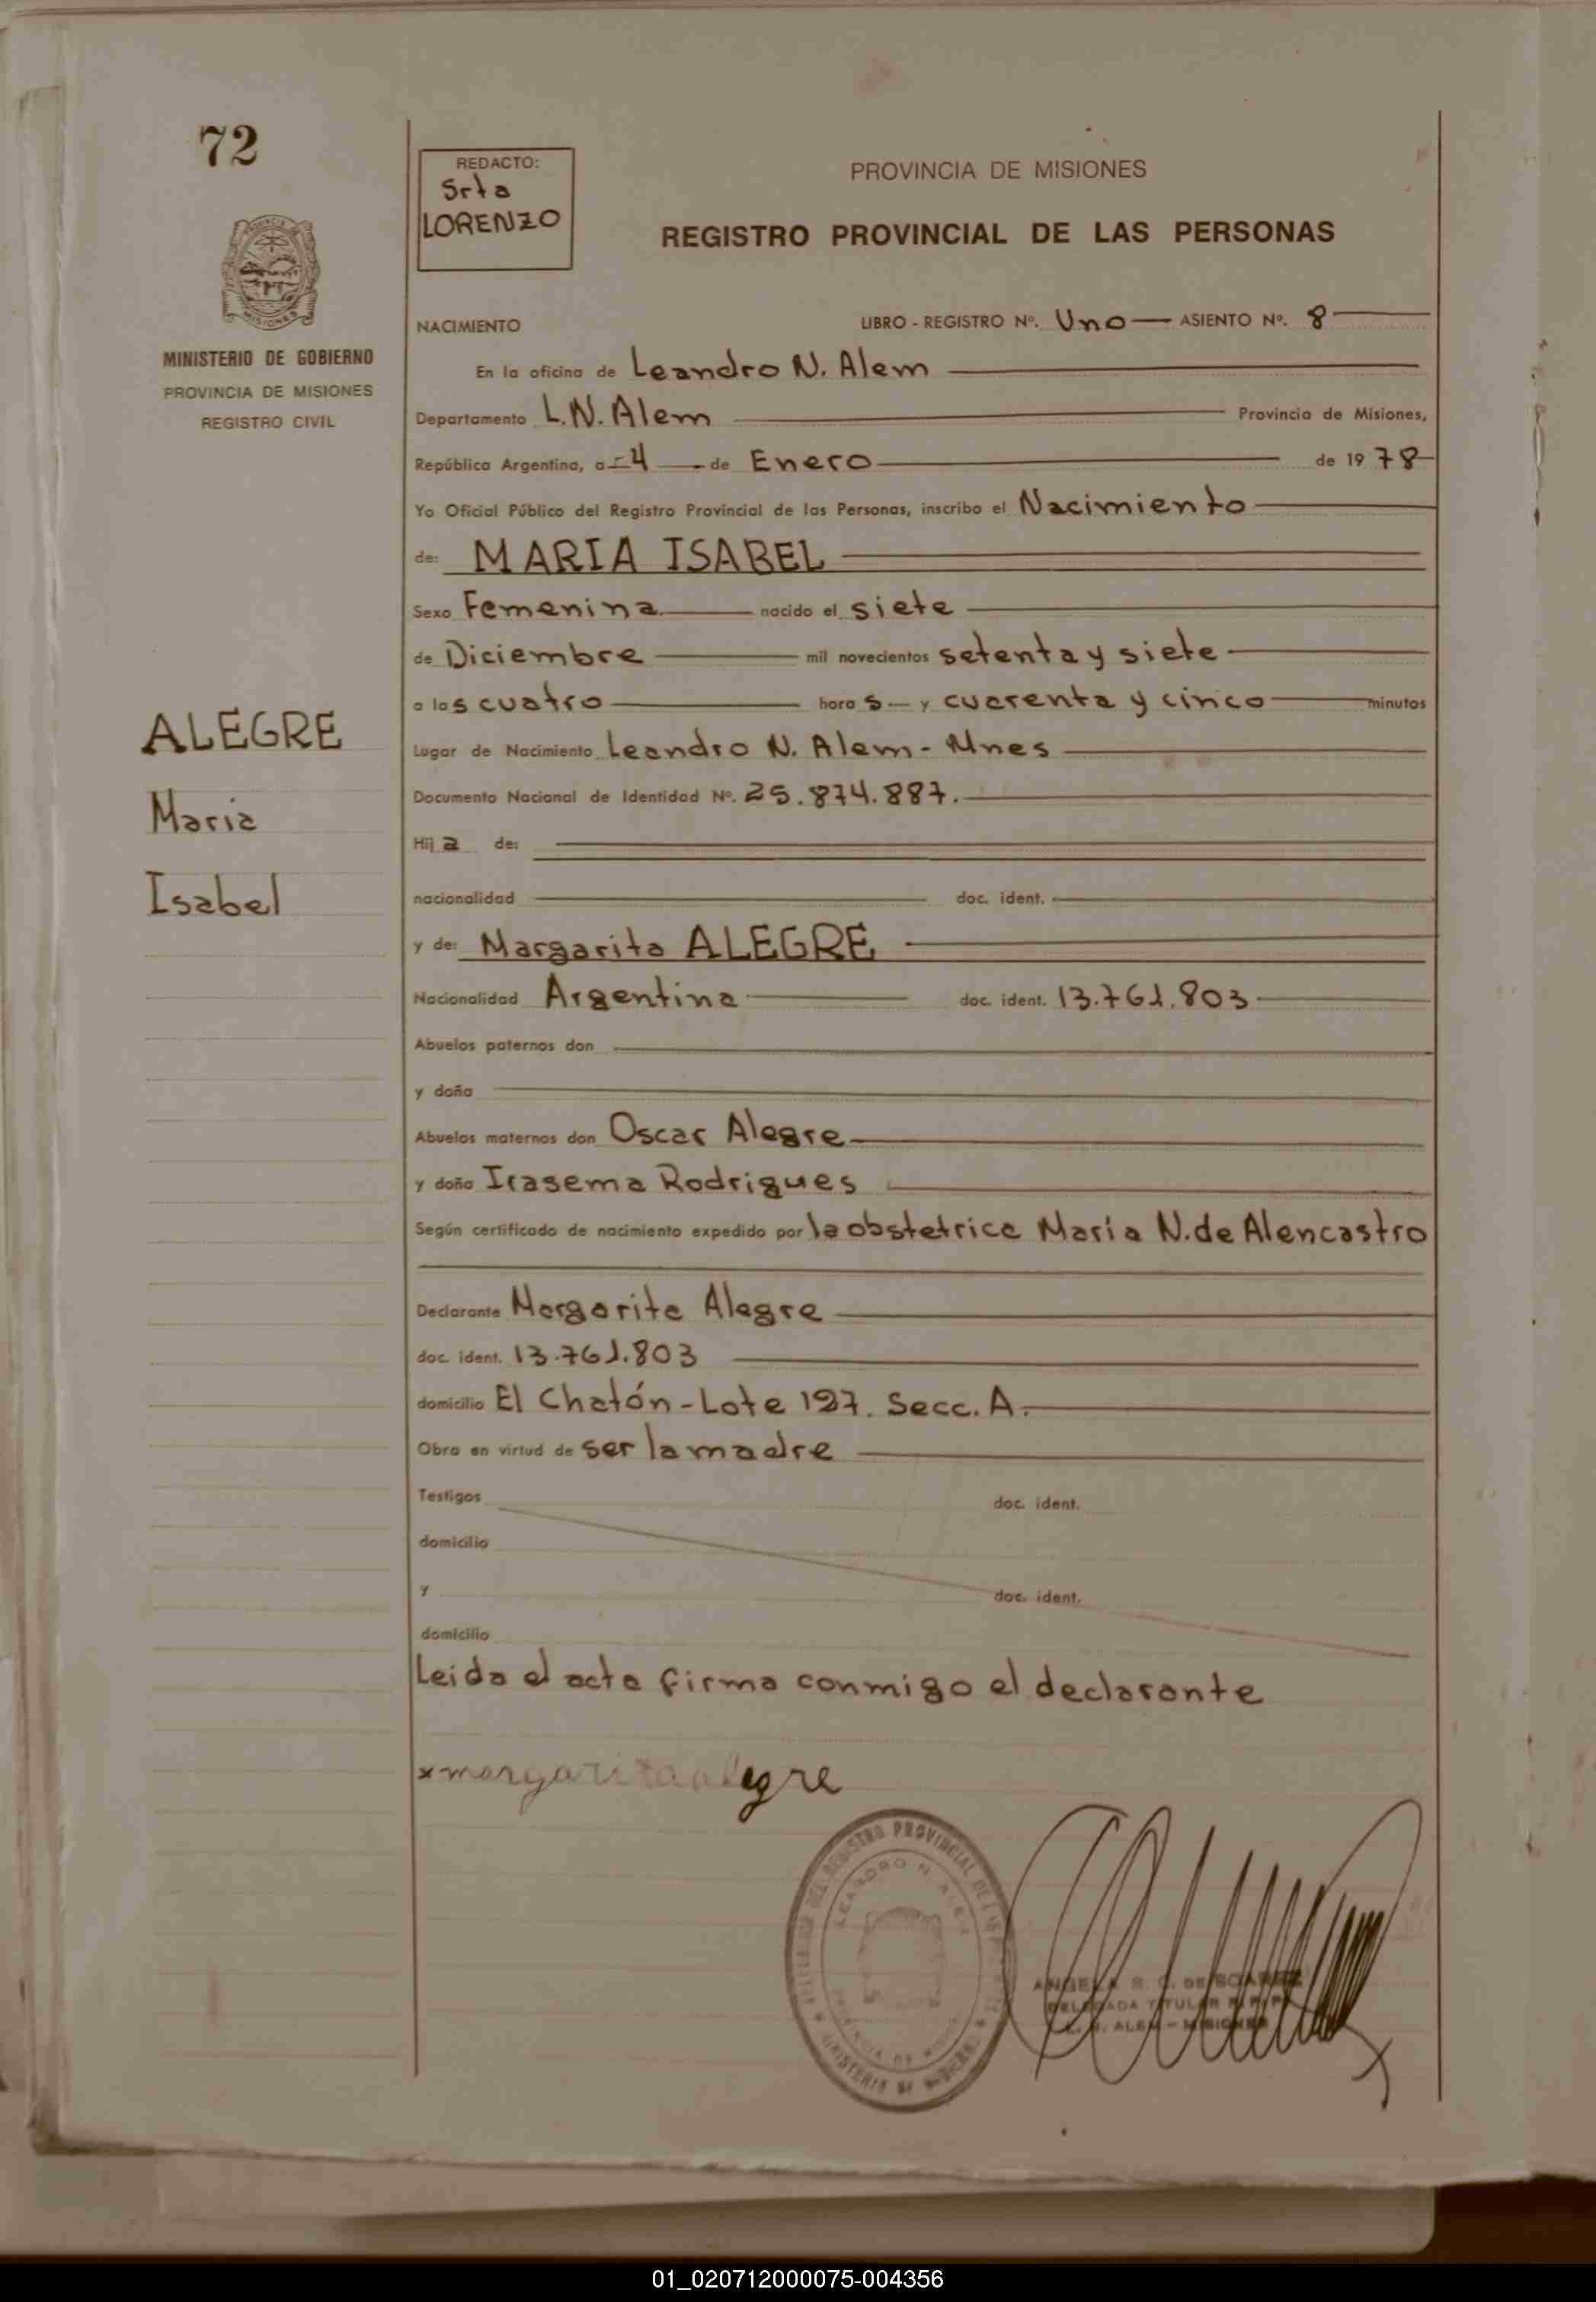 72
REDACTO:
Srta
LORENZO
PROVINCIA DE MISIONES
REGISTRO PROVINCIAL DE LAS PERSONAS
MINISTERIO DE GOBIERNO
PROVINCIA DE MISIONES
REGISTRO CIVIL
ALEGRE
Maria
Isabel
NACIMIENTO LIBRO - REGISTRO Nº. Uno ASIENTO Nº. 8
En la oficina de Leandro N. Alem
Departamento L.N. Alem Provincia de Misiones,
República Argentina, a 4 de Enero de 1978
Yo Oficial Público del Registro Provincial de las Personas, inscribo el Nacimiento
de: MARIA ISABEL
Sexo Femenina nacido el siete
de Diciembre mil novecientos setenta y siete
a las cuatro horas y cuarenta y cinco minutos
Lugar de Nacimiento Leandro N. Alem - Mnes
Documento Nacional de Identidad Nº. 25.874.887.
Hija de:
nacionalidad doc. ident.
y de: Margarita ALEGRE
Nacionalidad Argentina doc. ident. 13.761.803
Abuelos paternos don
y doña
Abuelos maternos don Oscar Alegre
y doña Irasema Rodrigues
Según certificado de nacimiento expedido por la obstetrice María N. de Alencastro
Declarante Margarita Alegre
doc. ident. 13.761.803
domicilio El Chatón - Lote 127. Secc. A.
Obra en virtud de ser la madre
Testigos doc. ident.
domicilio
y doc. ident.
domicilio
Leida el acta firma conmigo el declarante
x margarita alegre
REGISTRO PROVINCIAL DE
LEANDRO N. ALEM
PROVINCIA DE
MINISTERIO DE
ANGELA DE
DELEGADA TITULAR
N. ALEM - MISIONES
01_020712000075-004356